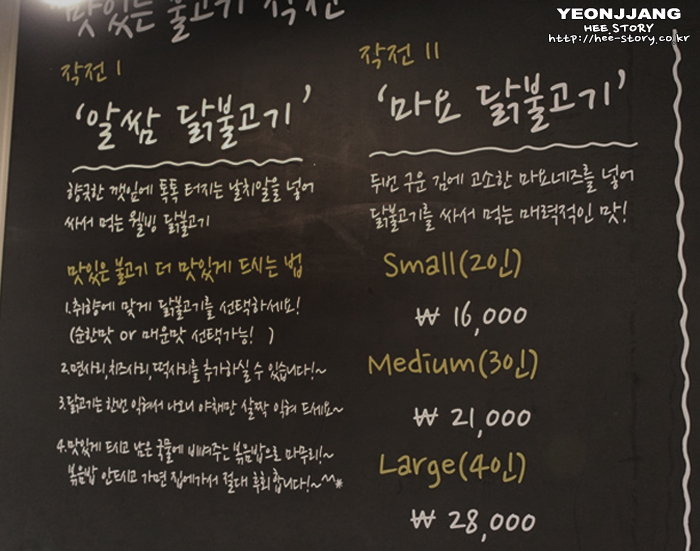 맛있는 불고기 작전
YEONJJANG
HEE STORY
http://hee-story.co.kr
작전 I
'알쌈 닭불고기'
향긋한 깻잎에 톡톡 터지는 날치알을 넣어
싸서 먹는 웰빙 닭불고기
맛있은 불고기 더 맛있게 드시는 법
1.취향에 맞게 닭불고기를 선택하세요!
(순한맛 or 매운맛 선택가능! )
2.면사리,치즈사리,떡사리를 추가하실 수 있습니다!~
3.닭고기는 한번 익혀서 나오니 야채만 살짝 익혀 드세요~
4.맛있게 드시고 남은 국물에 비벼주는 볶음밥으로 마무리!~
볶음밥 안드시고 가면 집에가서 절대 후회합니다!~^^*
작전 II
'마요 닭불고기'
두번 구운 김에 고소한 마요네즈를 넣어
닭불고기를 싸서 먹는 매력적인 맛!
Small(2인)
₩ 16,000
Medium(3인)
₩ 21,000
Large(4인)
₩ 28,000